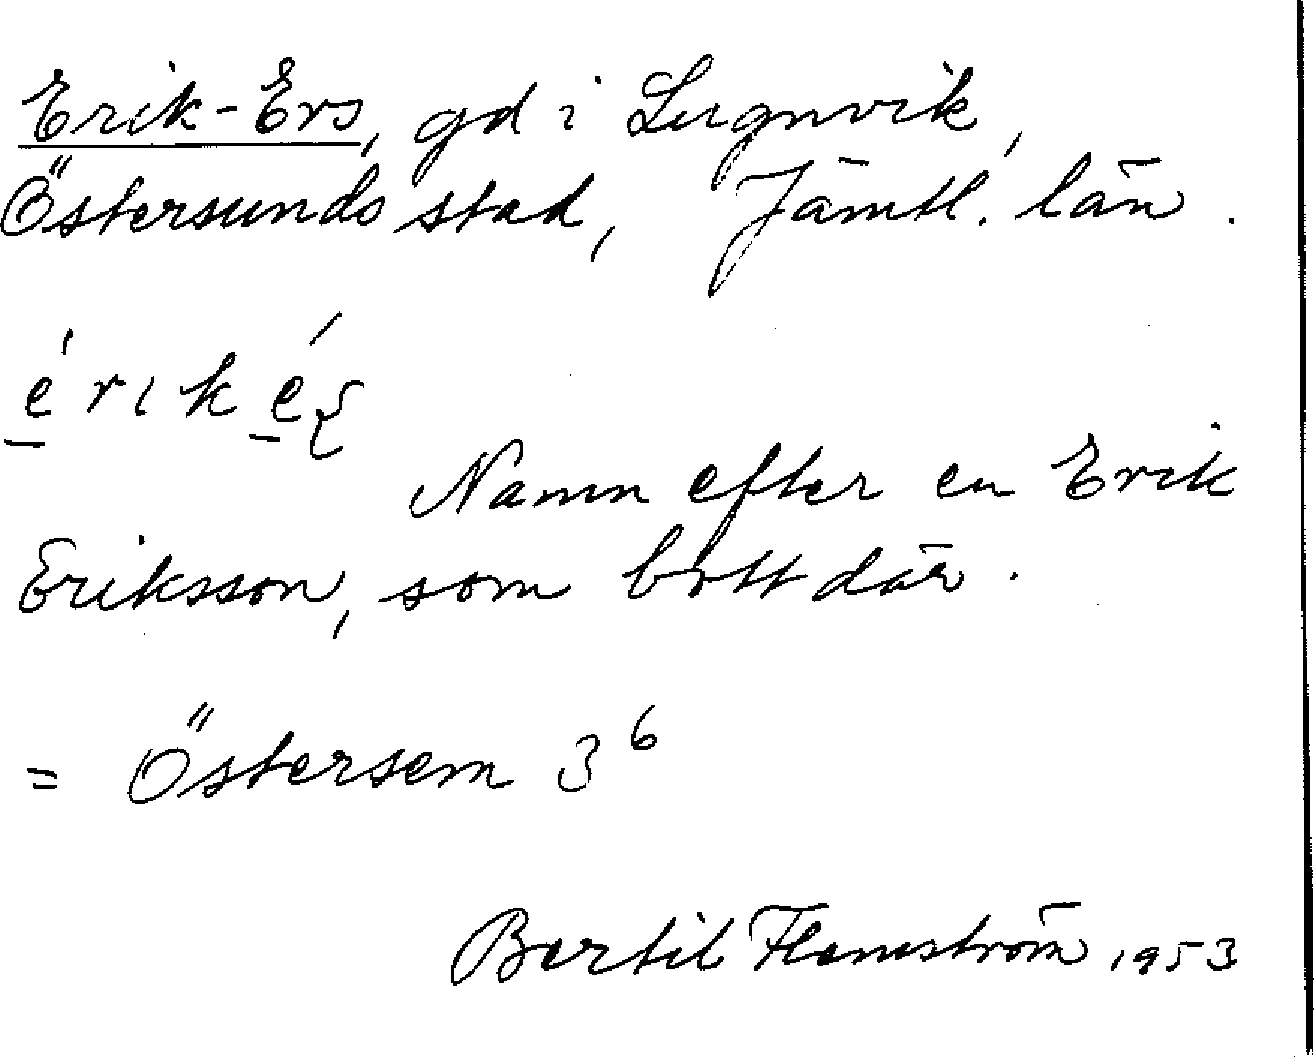 Erik-Ers, gd i Lugnvik,
Östersunds stad, Jämtl. län.
é̱rık é̱
Namn efter en Erik
Eriksson, som bott där.
= Östersem 3⁶
Bertil Flemström 1953